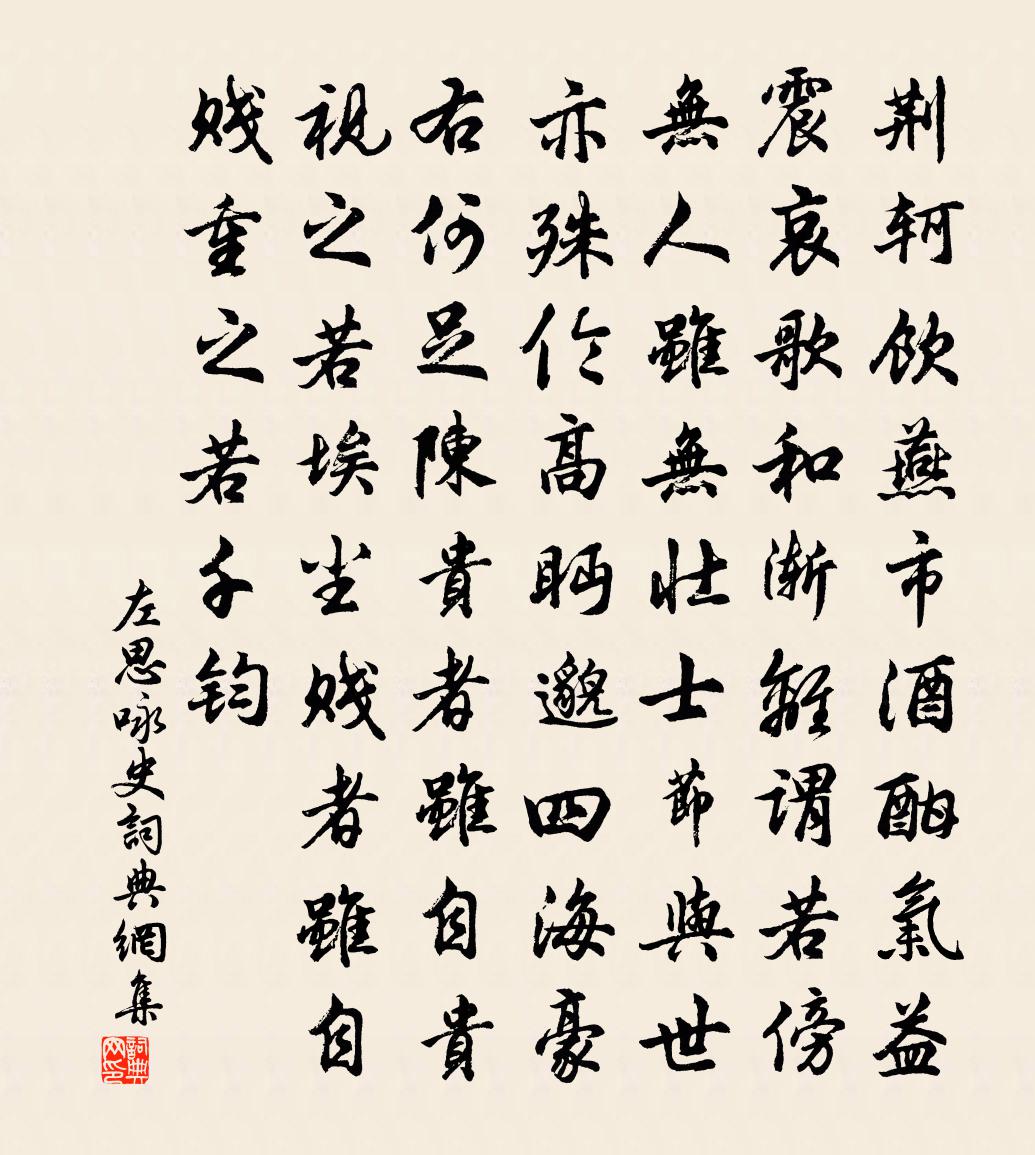 荆軻飲燕市酒酣氣益
震哀歌和漸離謂若傍
無人雖無壯士節與世
亦殊伦高眄邈四海豪
右何足陳貴者雖自貴
視之若埃尘賤者雖自
賤重之若千鈞
左思咏史詞典網集
詞典网印